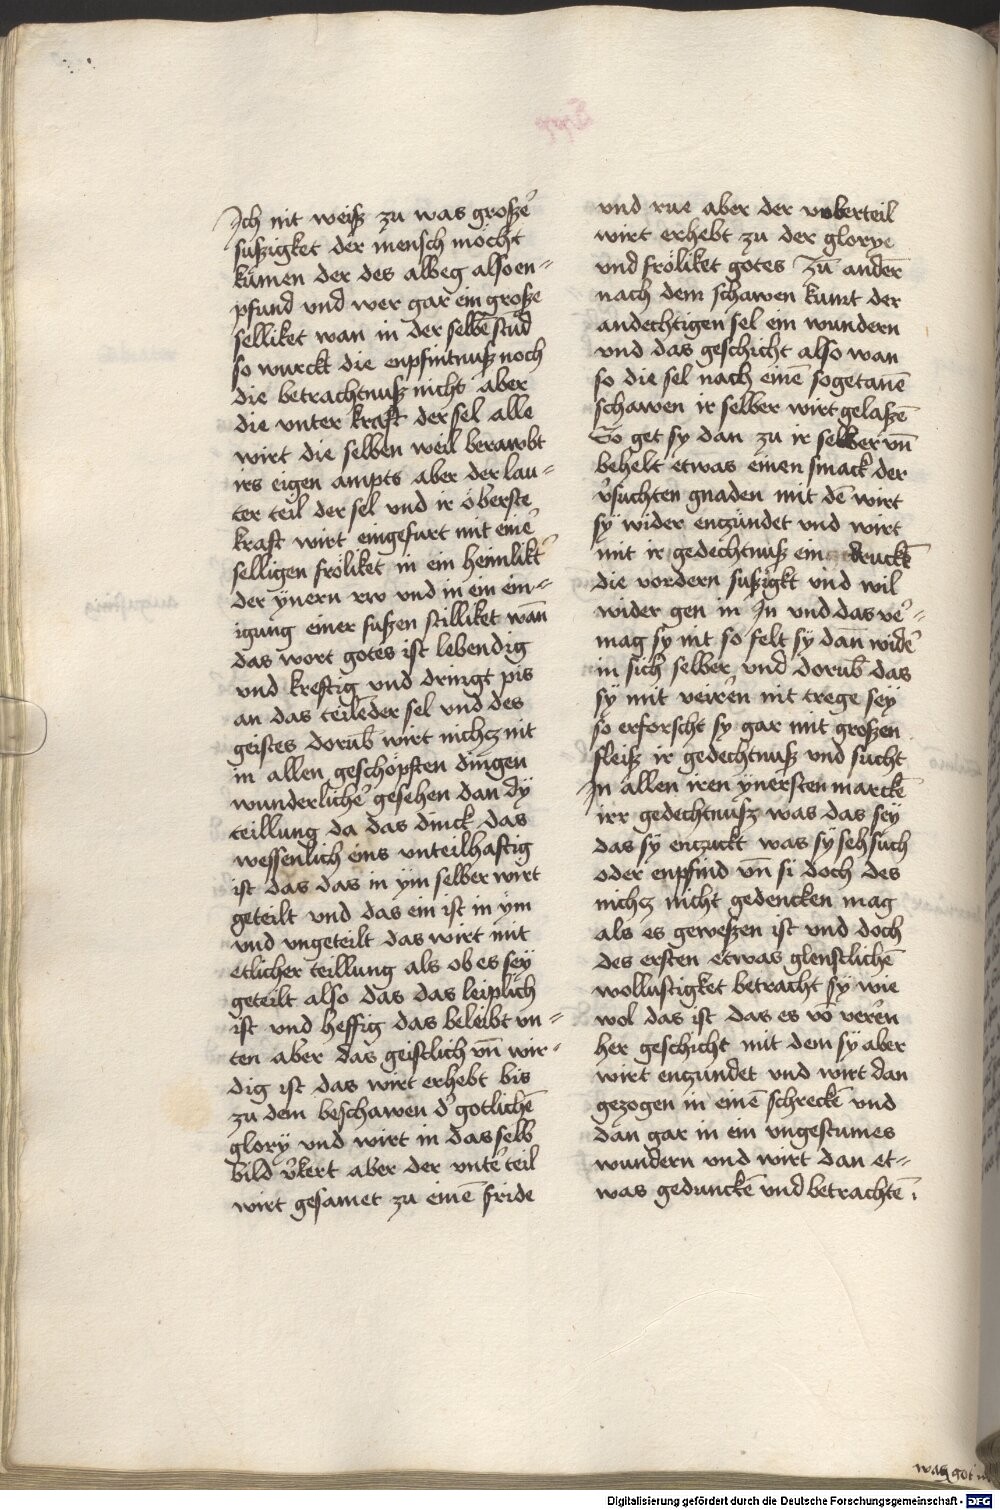 Ich nit weiß zu was große͛
sußzigket der mensch mocht
kumen der des albeg also en⸗
pfund vnd wer gar ein große
selliket wan in der selbē stūd
so wurckt die enpfintnuß noch
die betrachtnuß nichs aber
die vnter kraft der sel alle
wirt die selben weil berawbt
irs eigen ampts aber der lau⸗
ter teil der sel vnd ir öberste
kraft wirt eingefurt mit eine͛
selligen fröliket in ein heimlikt
der ynern rw vnd in ein ein⸗
igung einer sußen stilliket wan̄
das wort gotes ist lebendig
vnd kreftig vnd dringt pis
an das teil der sel vnd des
geistes dorub̄ wirt nichcz nit
in allen geschöpften dingen
wunderliche͛ gesehen dan dy
teillung da das dinck das
wessenlich eins vnteilhaftig
ist das das in ym selber wirt
geteilt vnd das ein ist in ym
vnd vngeteilt das wirt mit
etlicher teillung als ob es sey
geteilt also das das leiplich
ist vnd heffig das beleibt vn⸗
ten aber das geistlich vn̄ wir⸗
dig ist das wirt erhebt bis
zu dem beschawen d͛ gotlichē
glory vnd wirt in das selb
bild v͛kert aber der vnte͛ teil
wirt gesamet zu einē fride
vnd rue aber der vberteil
wirt erhebt zu der glorye
vnd fröliket gotes Zū ander
nach dem schawen kumt der
andechtigen sel ein wundern
vnd das geschicht also wan
so die sel nach einē sogetanē
schawen ir selber wirt gelaßē
So get sy dan zu ir selber vn̄
behelt etwas einen smack der
v͛suchten gnaden mit dē wirt
sy wider enczündet vnd wirt
mit ir gedechtnuß ein druckē
die vordern sußigkt vnd wil
wider gen in In vnd das ve͛⸗
mag sy nit so felt sy dan̄ wide͛
in sich selber vnd dorub̄ das
sy mit veiren nit trege sey
so erforscht sy gar mit großen
fleiß ir gedechtnuß vnd sucht
In allen iren ynersten marckē
irr gedechtnusz was das sey
das sy enczuckt was sy seh such
oder enpfind vn̄ si doch des
nichcz nicht gedencken mag
als es geweßen ist vnd doch
des ersten etwas glenstlichē
wollustigket betracht sy wie
wol das ist das es vō veren
her geschicht mit dem sy aber
wirt enczundet vnd wirt dan
gezogen in einē schreckē vnd
dan gar in ein vngestumes
wundern vnd wirt dan et⸗
was gedunckē vnd betrachtē .
was got in
Digitalisierung gefördert durch die Deutsche Forschungsgemeinschaft - DFG